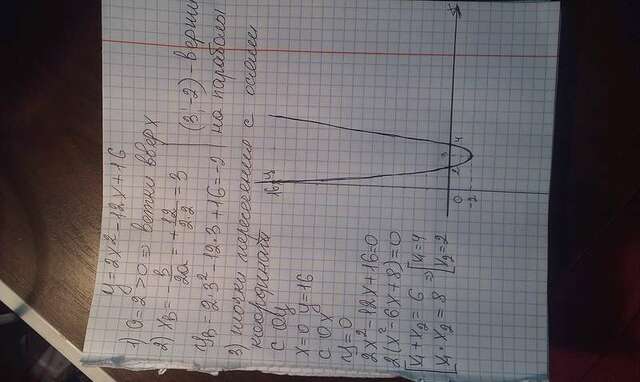 y=2x²-12x+16
1) a=2>0 ⇒ ветки вверх
2) xв = -в/2a = +12/2·2 = 3
yв=2·3²-12·3+16=-2 | (3;-2) - верши
на параболы
3) точки пересечения с осями
координат
с Oy
x=0 y=16
с Ox
y=0
2x²-12x+16=0
2(x²-6x+8)=0
[x₁+x₂=6 ⇒ [x₁=4
[x₁·x₂=8 [x₂=2
16
y
3
2
4
x
0
-2